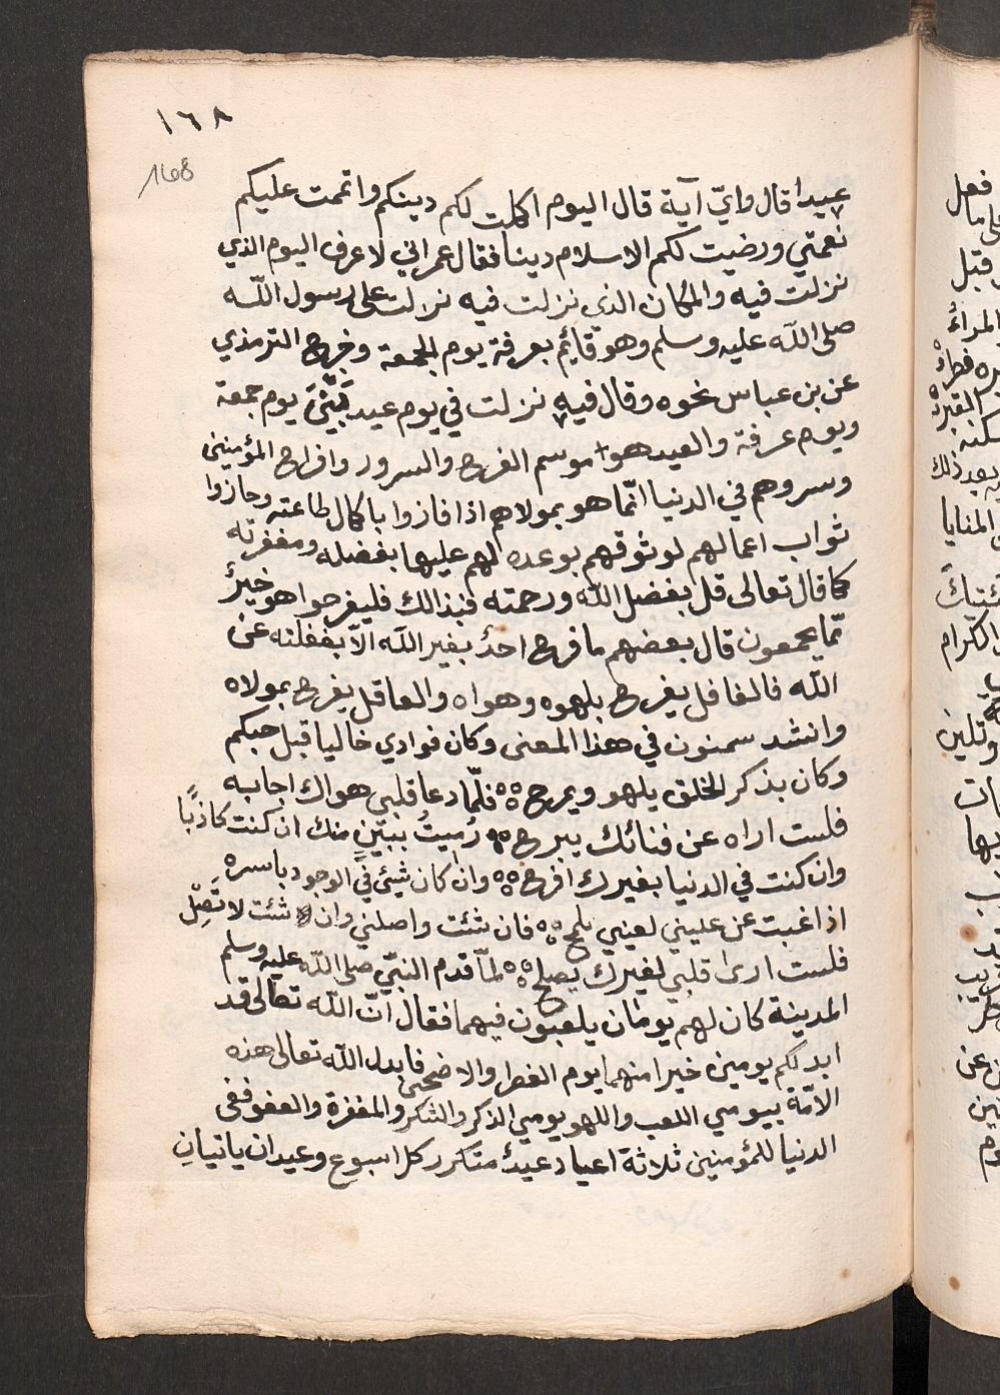 ١٦٨
168
عيدا قال واي آية قال اليوم اكملت لكم دينكم واتممت عليكم
نعمتي ورضيت لكم الاسلام دينا فقال عمر اني لاعرف اليوم الذي
نزلت فيه والمكان الذي نزلت فيه نزلت على رسول اللّه
صلى اللّه عليه وسلم وهو قائيم بعرفة يوم الجمعة وخرج الترمذي
عن بن عباس نحوه وقال فيه نزلت في يوم عيد يوم جمعة
ويوم عرفة والعيد هو موسم الفرح والسرور وافراح المؤمنين
وسروهم في الدنيا انّما هو بمولاهم اذا فازوا باكمال طاعته وحازوا
ثواب اعمالهم لوثوقهم بوعده لهم عليها بفضله ومغفرته
كما قال تعالى قل بفضل اللّه ورحمته فبذالك فليفرحوا هو خيرٌ
ممّا يجمعون قال بعضهم ما فرح احدٌ بغير اللّه الاّ بغفلته عن
اللّه فالغافل يفرح بلهوه وهواه والعاقل يفرح بمولاه
وانشد سمنون في هذا المعنى وكان فوادي خاليا قبل حبكم
وكان بذكر الخلق يلهو ويمرح فلّما دعا قلبي هواك اجابه
فلست اراه عن فنائك يبرح رُميتُ ببينٍ منك ان كنت كاذبًا
وان كنت في الدنيا بغيرك افرح وان كان شيئ في الوجود باسره
اذا غبت عن عليني لعيني يلمح فان شئت واصلني وان شئت لا تَصِلْ
فلست ارى قلبي لغيرك يصلح لمّا قدم النبّي صلى اللّه عليه وسلم
المدينة كان لهم يومان يلعبون فيهما فقال انّ اللّه تعالى قد
ابدلكم يومين خيرا منهما يوم الفطر والاضحى فابدل اللّه تعالى هذه
الامّة بيومي اللعب واللهو يومي الذكر والشكر والمغفرة والعفو ففي
الدنيا للمؤمنين ثلاثة اعياد عيدٌ متكرر كل اسبوع وعيدان ياتيان